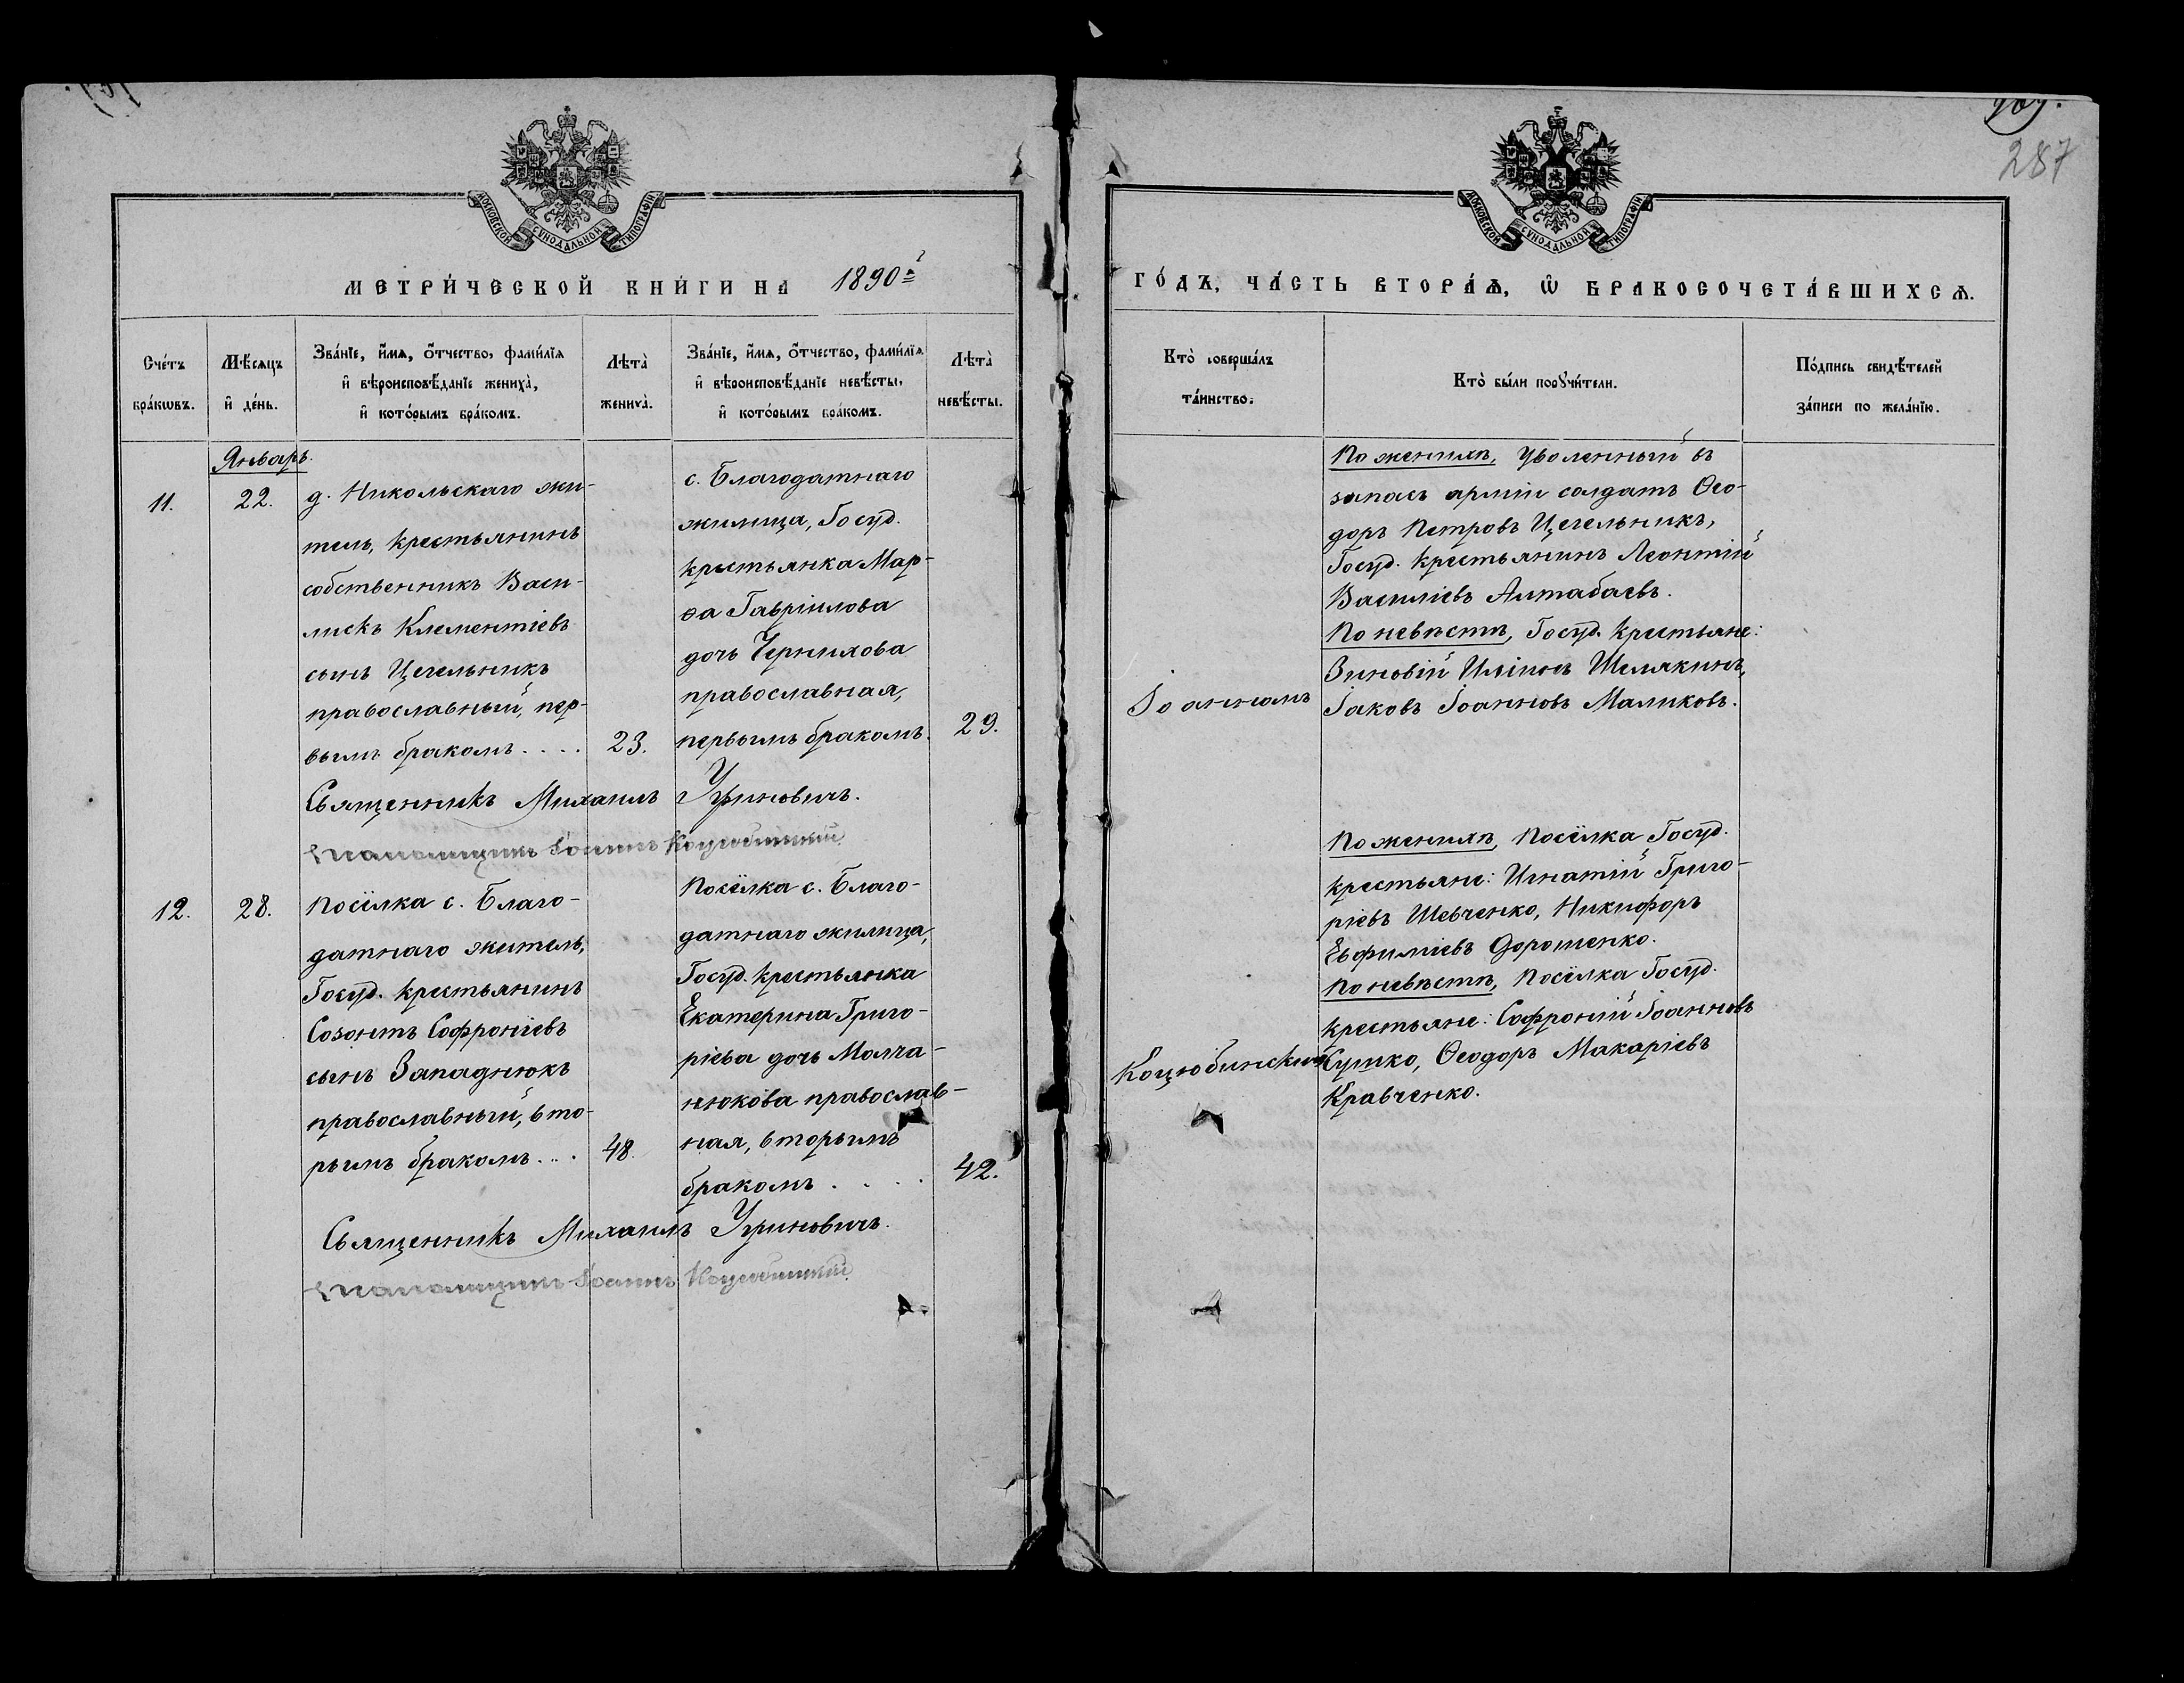 287
МОСКОВСКОЙ СѴНОДАЛЬНОЙ ТИПОГРАФІИ
МОСКОВСКОЙ СѴНОДАЛЬНОЙ ТИПОГРАФІИ
МЕТРИ́ЧЕСКОЙ КНИ́ГИ НА 1890й
ГО́ДЪ, ЧА́СТЬ ВТОРА́Ѧ, Ѡ҆ БРАКОСОЧЕТА́ВШИХСѦ.
Сче́тъ бра́кѡвъ.
Мѣ́сяцъ и҆ де́нь.
Зва́нїе, и҆́мѧ, ѻ҆́тчество, фами́лїѧ
и҆ вѣроисповѣ́данїе жениха̀,
и҆ кото́рымъ бра́комъ.
Лѣта̀ жениха̀.
Зва́нїе, и҆́мѧ, ѻ҆́тчество, фами́лїѧ
и҆ вѣроисповѣ́данїе невѣ́сты,
и҆ кото́рымъ бра́комъ.
Лѣта̀ невѣ́сты.
Кто̀ соверша́лъ та́инство.
Кто̀ бы́ли порꙋчи́тели.
По́дпись свидѣ́телей
за́писи по жела́нїю.
Январь.
11.
22.
д. Никольскаго жи-
тель, крестьянинъ
собственникъ Васи-
лискъ Клементіевъ
сынъ Цегельникъ
православный, пер-
вымъ бракомъ....
23.
с. Благодатнаго
жилица, Госуд.
крестьянка Мар-
ѳа Гавріилова
дочь Чернихова
православная,
первымъ бракомъ.
29.
Священникъ Михаилъ Угриновичъ.
Псаломщикъ Іоаннъ Коцюбинскій.
Іоанномъ
По женихѣ, Уволенный въ
запасъ арміи солдатъ Ѳео-
доръ Петровъ Цегельникъ,
Госуд. крестьянинъ Леонтій
Василіевъ Алтабаевъ.
По невѣстѣ, Госуд. крестьяне:
Зиновій Иліинъ Шелякинъ,
Іаковъ Іоанновъ Маликовъ.
12.
28.
Посёлка с. Благо-
датнаго житель,
Госуд. крестьянинъ
Созонтъ Софроніевъ
сынъ Западнюкъ
православный, вто-
рымъ бракомъ...
48.
Посёлка с. Благо-
датнаго жилица,
Госуд. крестьянка
Екатерина Григо-
ріева дочь Молча-
нюкова православ-
ная, вторымъ
бракомъ....
42.
Священникъ Михаилъ Угриновичъ.
Псаломщикъ Іоаннъ Коцюбинскій.
Коцюбинскимъ
По женихѣ, Посёлка Госуд.
крестьяне: Игнатій Григо-
ріевъ Шевченко, Никифоръ
Евфиміевъ Дорошенко.
По невѣстѣ, Посёлка Госуд.
крестьяне: Софроній Іоанновъ
Сушко, Ѳеодоръ Макаріевъ
Кравченко.